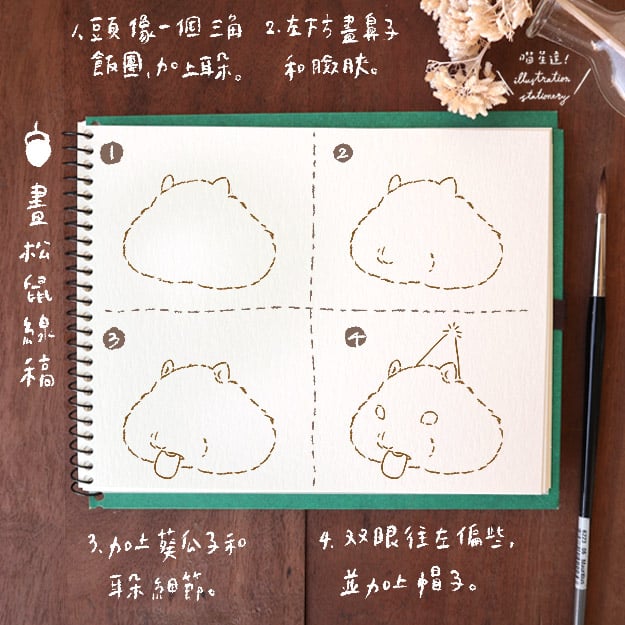 1.頭像一個三角
飯團,加上耳朵。
2.左下方畫鼻子
和臉頰。
喵星達!
illustration
stationery
畫松鼠線稿
1
2
3
4
3.加上葵瓜子和
耳朵細節。
4.双眼往左偏些,
並加上帽子。